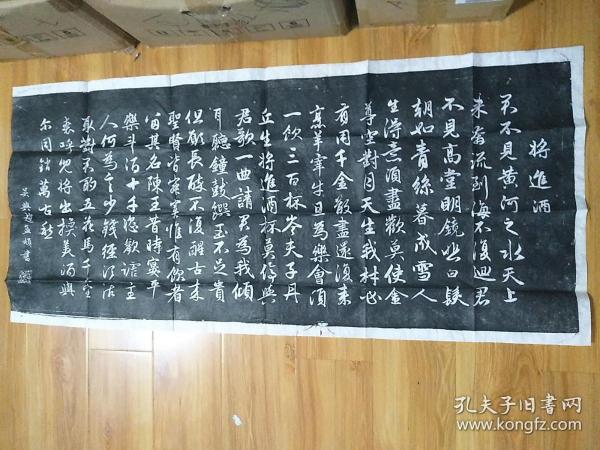 将進酒
君不見黄河之水天上
来奔流到海不復迴君
不見高堂明鏡悲白髮
朝如青絲暮成雪人
生得意須盡歡莫使金
尊空對月天生我材必
有用千金散盡還復来
烹羊宰牛且為樂會須
一飲三百杯岑夫子丹
丘生将進酒杯莫停與
君歌一曲請君為我傾
耳聽鐘鼓饌玉不足貴
但願長醉不復醒古来
聖賢皆寂寞惟有飲者
留其名陳王昔時宴平
樂斗酒十千恣歡謔主
人何為言少錢徑須沽
取對君酌五花馬千金
裘呼兒将出換美酒與
尔同銷萬古愁
吴興趙孟頫書
孔夫子旧书网
www.kongfz.com